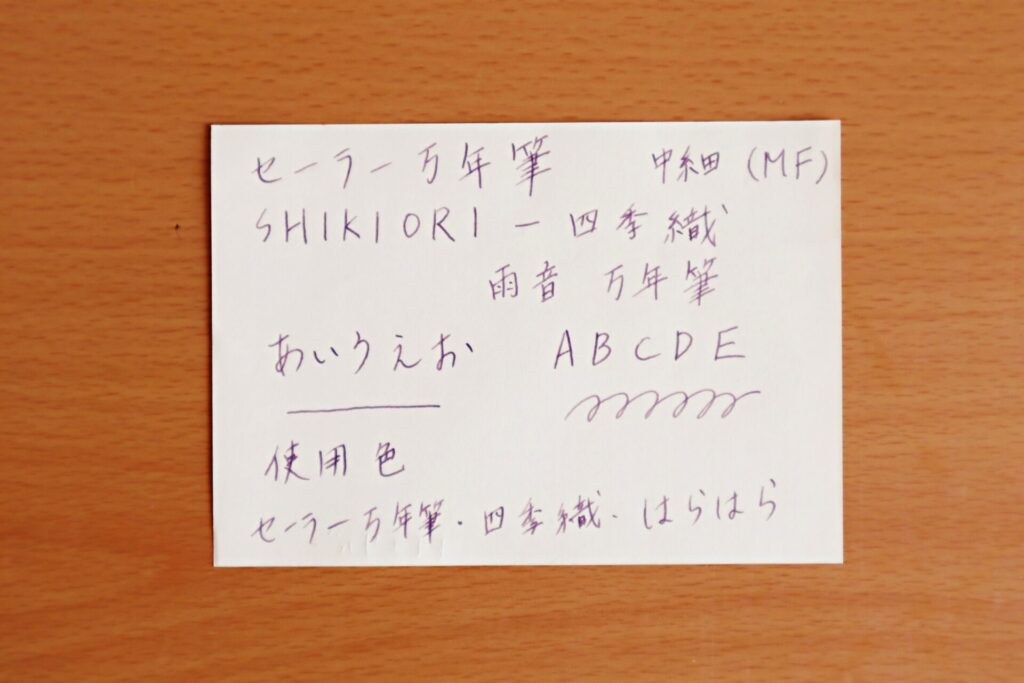 セーラー万年筆 中細 (MF)
SHIKIORI ー 四季織
雨音 万年筆
あいうえお ABCDE
使用色
セーラー万年筆・四季織・はらはら